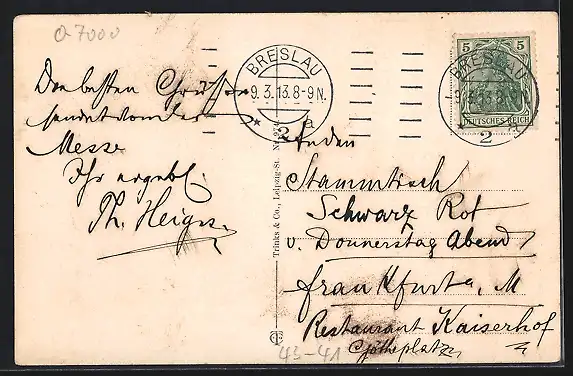 O-7000
Die besten Grüße
sendet von der
Messe
Ihr ergebt.
Th. Heigs
BRESLAU
9.3.13.8-9N.
* 2 a
BRESLAU
2 a
5 5
DEUTSCHES REICH
Trinks & Co., Leipzig-St. No. 974
An den
Stammtisch
Schwarz Rot
v. Donnerstag Abend
Frankfurt a. M
Restaurant Kaiserhof
Götheplatz
43-41